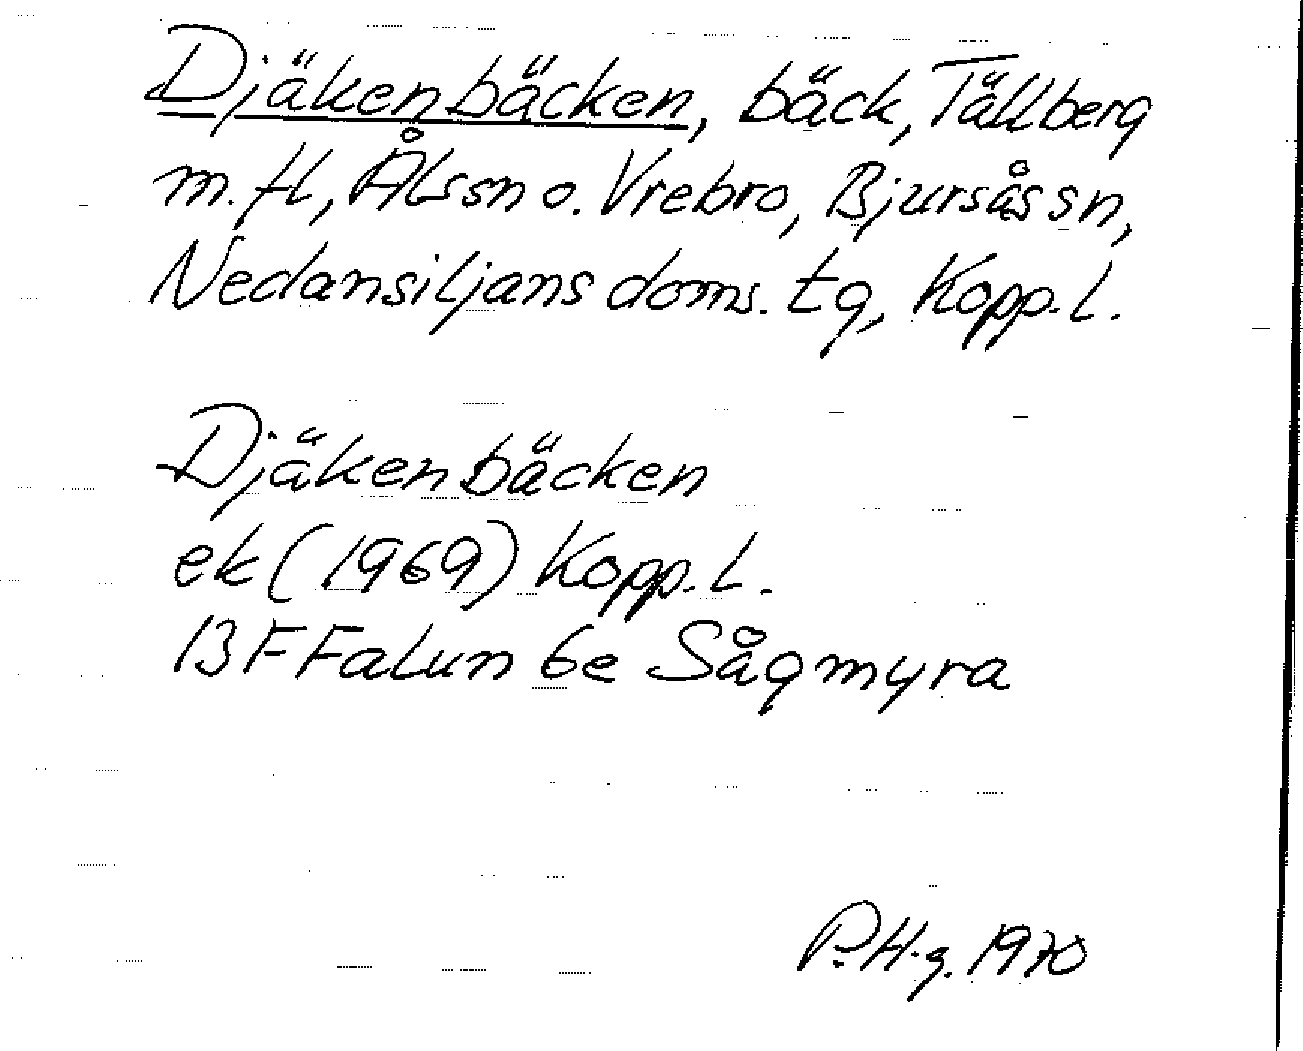 Djäkenbäcken, bäck, Tällberg
m. fl, Ål ssn o. Vrebro, Bjursås sn,
Nedansiljans doms. tg, Kopp. l.
Djäkenbäcken
ek (1969) Kopp. L.
13 F Falun 6e Sågmyra
P. H-g. 1970